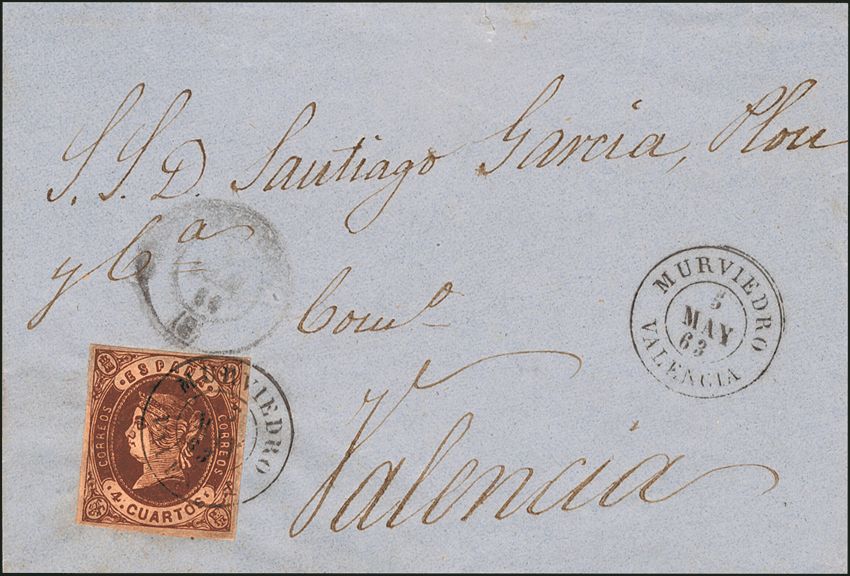 S. S. D. Santiago Garcia, Plou
y Cª
Comº
Valencia
MURVIEDRO
5
MAY
63
VALENCIA
ESPAÑA
CORREOS
CORREOS
4 CUARTOS
MURVIEDRO